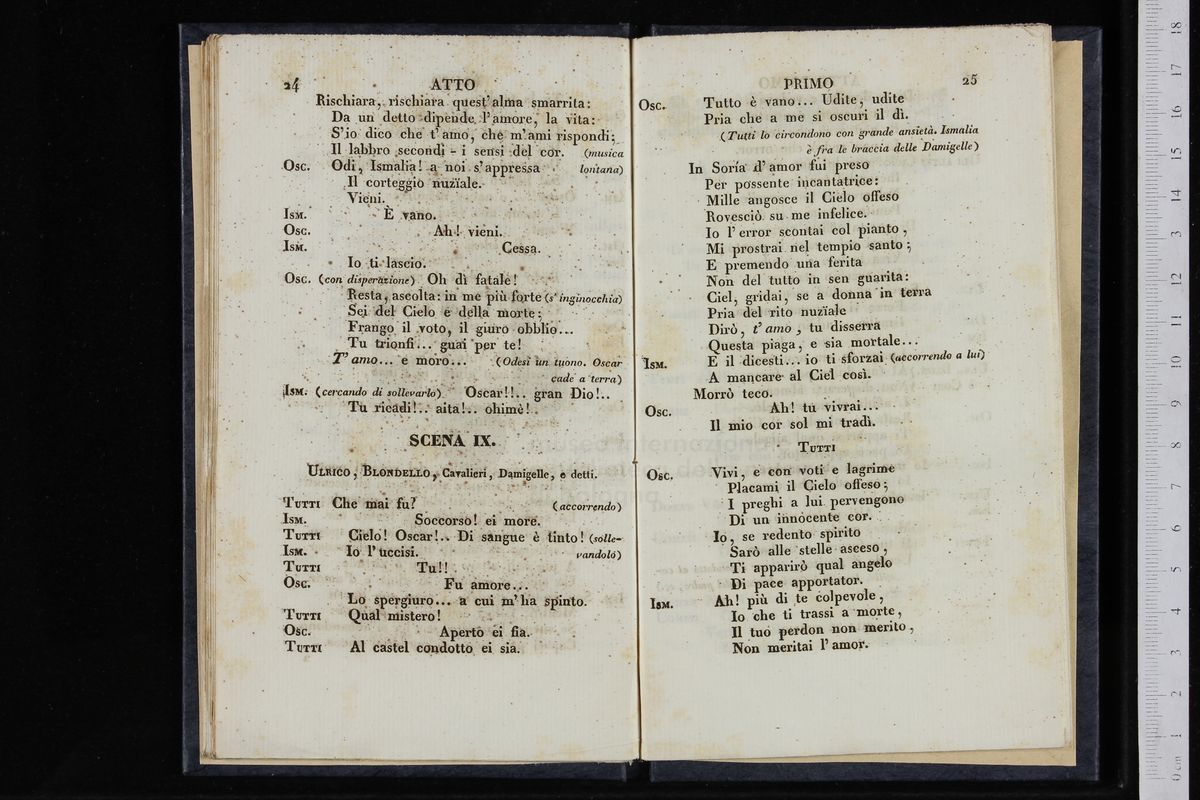 24 ATTO
Rischiara, rischiara quest' alma smarrita:
Da un detto dipende l'amore, la vita:
S'io dico che t'amo, che m'ami rispondi;
Il labbro secondi - i sensi del cor. (musica
Osc. Odi, Ismalia! a noi s'appressa lontana)
Il corteggio nuzïale.
Vieni.
Ism. È vano.
Osc. Ah! vieni.
Ism. Cessa.
Io ti lascio.
Osc. (con disperazione) Oh dì fatale!
Resta, ascolta: in me più forte (s'inginocchia)
Sei del Cielo e della morte;
Frango il voto, il giuro obblio...
Tu trionfi... guai per te!
T'amo... e moro... (Odesi un tuono. Oscar
cade a terra)
Ism. (cercando di sollevarlo) Oscar!!.. gran Dio!..
Tu ricadi!.. aita!.. ohimè!
SCENA IX.
Ulrico, Blondello, Cavalieri, Damigelle, e detti.
Tutti Che mai fu? (accorrendo)
Ism. Soccorso! ei more.
Tutti Cielo! Oscar!.. Di sangue è tinto! (solle-
Ism. Io l'uccisi. vandolo)
Tutti Tu!!
Osc. Fu amore...
Lo spergiuro... a cui m'ha spinto.
Tutti Qual mistero!
Osc. Aperto ei fia.
Tutti Al castel condotto ei sia.
PRIMO 25
Osc. Tutto è vano... Udite, udite
Pria che a me si oscuri il dì.
(Tutti lo circondono con grande ansietà. Ismalia
è fra le braccia delle Damigelle)
In Soría d'amor fui preso
Per possente incantatrice:
Mille angosce il Cielo offeso
Rovesciò su me infelice.
Io l'error scontai col pianto,
Mi prostrai nel tempio santo;
E premendo una ferita
Non del tutto in sen guarita:
Ciel, gridai, se a donna in terra
Pria del rito nuzïale
Dirò, t'amo, tu disserra
Questa piaga, e sia mortale...
Ism. E il dicesti... io ti sforzai (accorrendo a lui)
A mancare al Ciel così.
Morrò teco.
Osc. Ah! tu vivrai...
Il mio cor sol mi tradì.
Tutti
Osc. Vivi, e con voti e lagrime
Placami il Cielo offeso;
I preghi a lui pervengono
Di un innocente cor.
Io, se redento spirito
Sarò alle stelle asceso,
Ti apparirò qual angelo
Di pace apportator.
Ism. Ah! più di te colpevole,
Io che ti trassi a morte,
Il tuo perdon non merito,
Non meritai l'amor.
0 cm 1 2 3 4 5 6 7 8 9 10 11 12 13 14 15 16 17 18